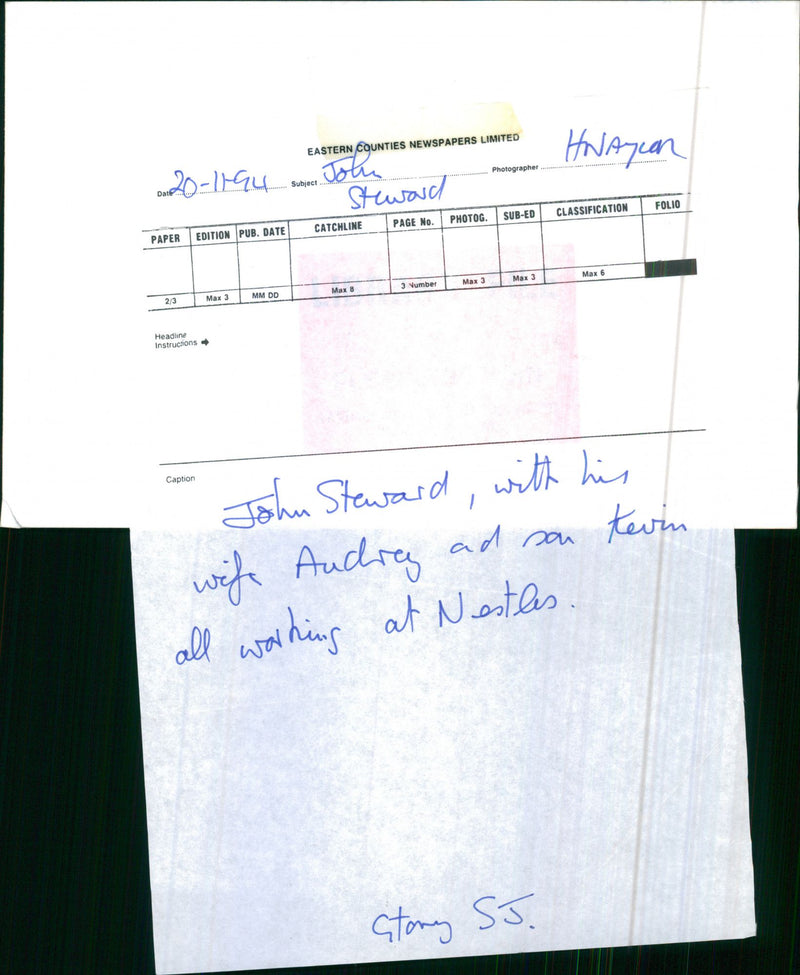 EASTERN COUNTIES NEWSPAPERS LIMITED
Date 20-11-94 Subject John Steward Photographer HNAYLOR
PAPER EDITION PUB. DATE CATCHLINE PAGE No. PHOTOG. SUB-ED CLASSIFICATION FOLIO
2/3 Max 3 MM DD Max 8 3 Number Max 3 Max 3 Max 6
Headline
Instructions
Caption
John Steward, with his
wife Audrey ad son Kevin
all working at Nestles.
Story SJ.